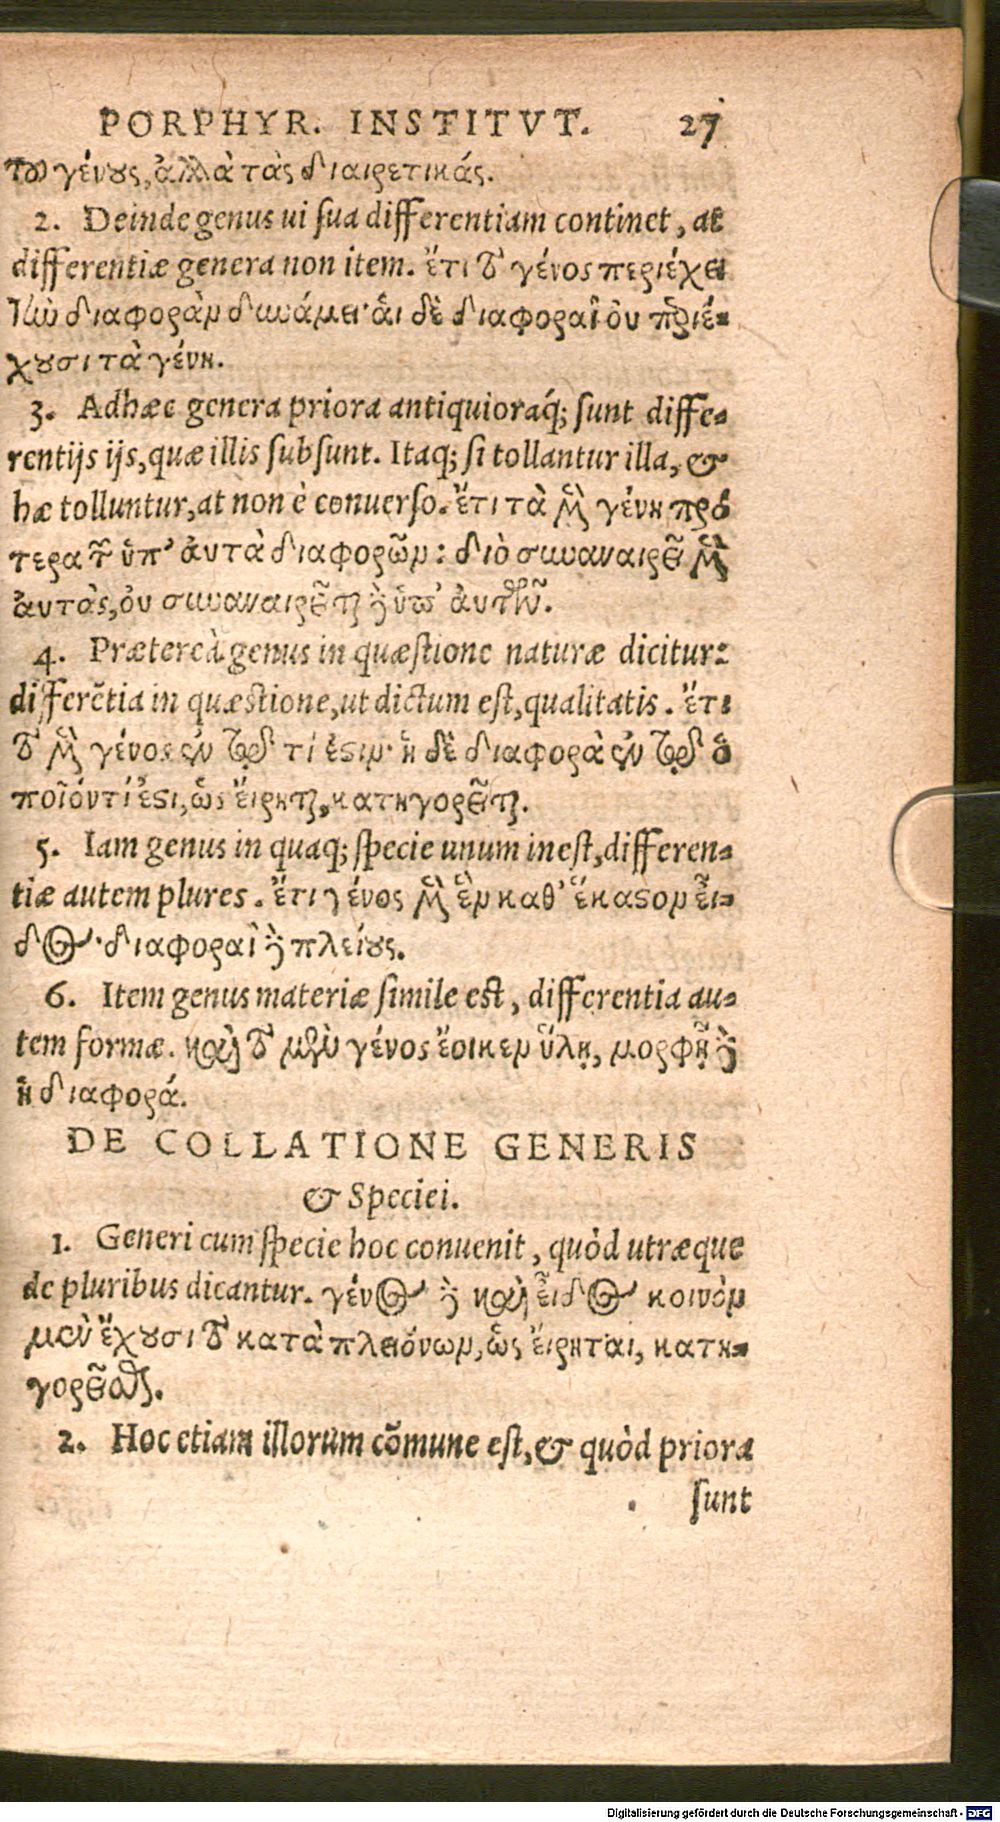 PORPHYR. INSTITVT. 27
τοῦ γένους, ἀλλὰ τὰς διαιρετικάς.
2. Deinde genus ui ſua differentiam continet, at
differentiæ genera non item. ἔτι τὸ γένος περιέχει
τὴν διαφορὰν δυνάμει· ἁι δὲ διαφοραὶ ὀυ περιέ-
χουσι τὰ γένη.
3. Adhæc genera priora antiquioraq́; ſunt diffe-
rentijs ijs, quæ illis ſubſunt. Itaq; ſi tollantur illa, &
hæ tolluntur, at non è conuerſo. ἔτι τὰ μὲν γένη πρό
τερα τῶν ὑπ' ἀυτὰ διαφορῶν: διὸ συναναιρεῖ μὲν
ἀυτὰς, ὀυ συναναιρεῖται δὲ ὑπ' ἀυτῶν.
4. Prætereà genus in quæſtione naturæ dicitur:
differẽtia in quæſtione, ut dictum eſt, qualitatis. ἔτι
τὸ μὲν γένος ἐν τῷ τί ἐστιν· ἡ δὲ διαφορὰ ἐν τῷ ὁ
ποῖόν τί ἐστι, ὡς ἔιρηται, κατηγορεῖται.
5. Iam genus in quaq; ſpecie unum ineſt, differen-
tiæ autem plures. ἔτι γένος μὲν ἓν καθ' ἕκαστον ἔι-
δος· διαφοραὶ δὲ πλείους.
6. Item genus materiæ ſimile eſt, differentia au-
tem formæ. καὶ τὸ μὲν γένος ἔοικεν ὕλῃ, μορφῇ δὲ
ἡ διαφορά.
DE COLLATIONE GENERIS
& Speciei.
1. Generi cum ſpecie hoc conuenit, quòd utræque
de pluribus dicantur. γένος δὲ καὶ ἔιδος κοινὸν
μὲν ἔχουσι τὸ κατὰ πλειόνων, ὡς ἔιρηται, κατη-
γορεῖσθαι.
2. Hoc etiam illorum cõmune eſt, & quòd priora
ſunt
Digitalisierung gefördert durch die Deutsche Forschungsgemeinschaft - DFG